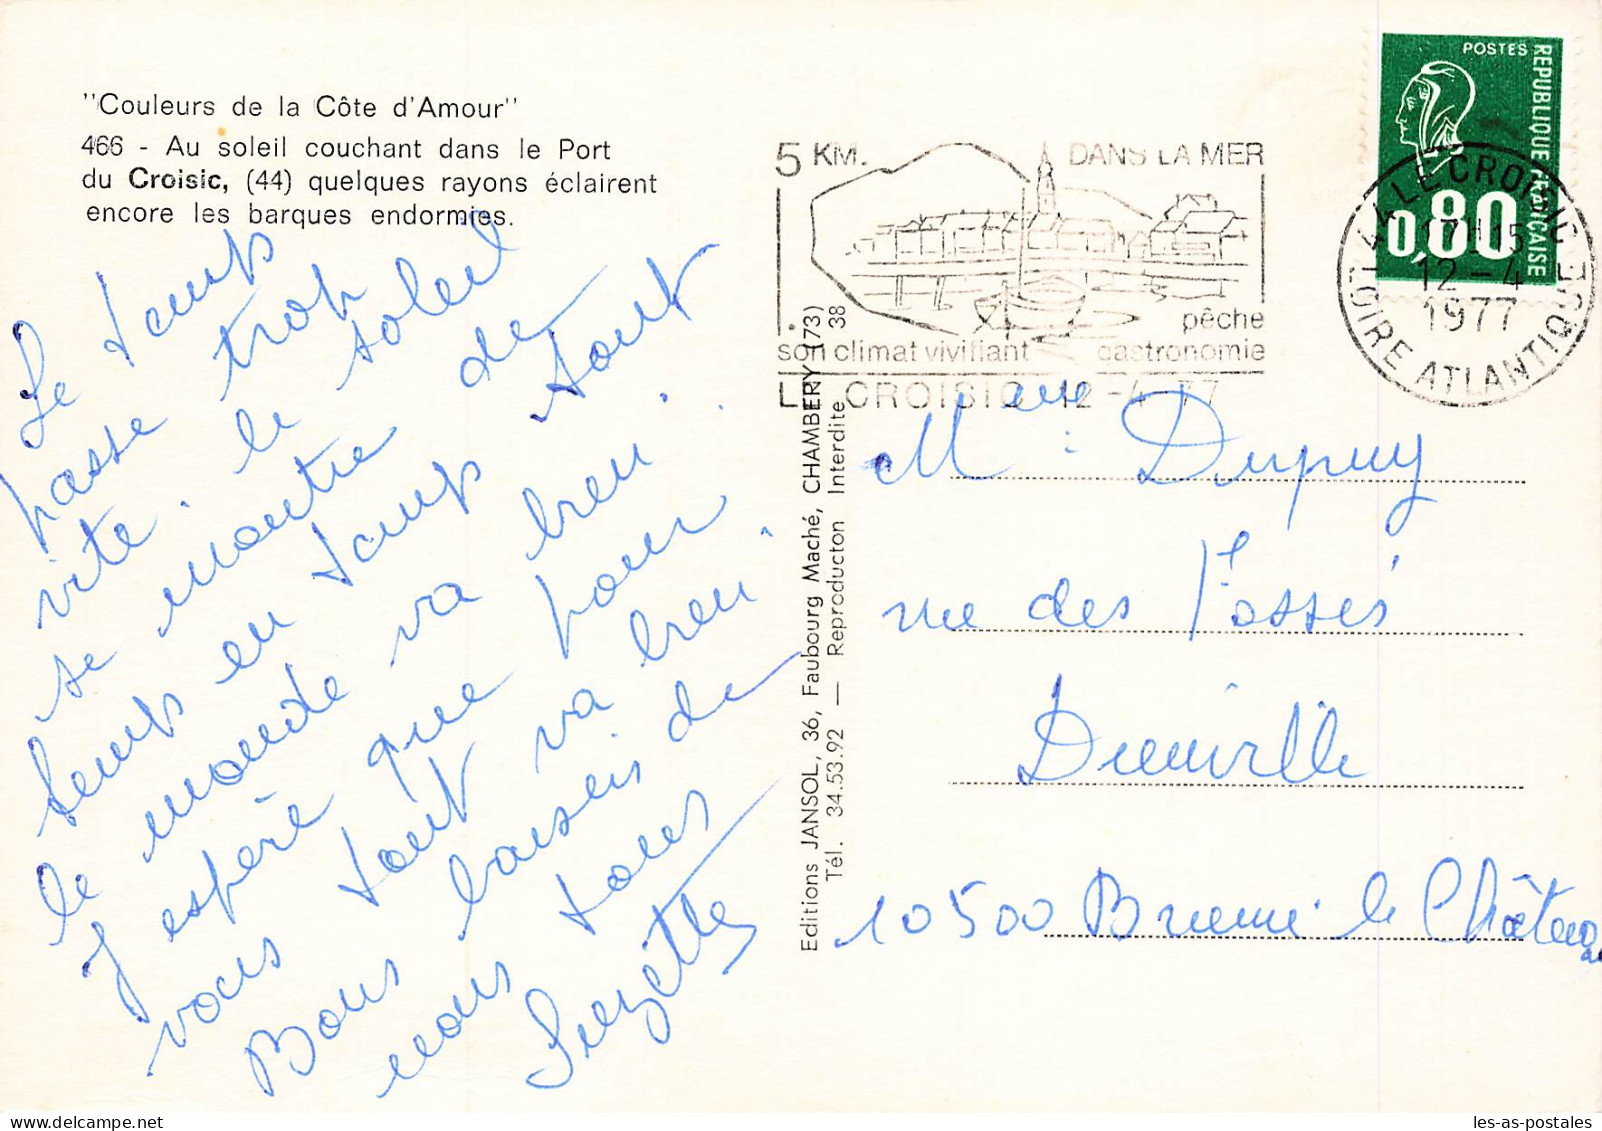 "Couleurs de la Côte d'Amour"
466 - Au soleil couchant dans le Port
du Croisic, (44) quelques rayons éclairent
encore les barques endormies.
Le temps
passe trop
vite. le soleil
se montre de
temps en temps tout
le monde va bien.
J'espère que pour
vous tout va bien.
Bons baisers de
nous tous
Suzette
Editions JANSOL, 36, Faubourg Maché, CHAMBERY (73)
Tél. 34.53.92 — Reproducton Interdite 38
5 KM. DANS LA MER
pêche
son climat vivifiant gastronomie
LE CROISIC 12-4-77
POSTES
REPUBLIQUE FRANCAISE
0,80
44 LE CROISIC
17H15
12-4
1977
LOIRE ATLANTIQUE
Mme Dupuy
rue des Fossés
Dienville
10500 Brienne le Château
les-as-postales